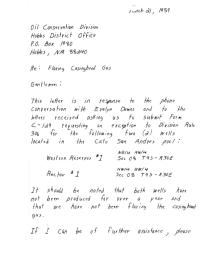 March 21, 1989
Oil Conservation Division
Hobbs District Office
P.O. Box 1980
Hobbs, NM 88240
Re: Flaring Casinghead Gas
Gentlemen:
This letter is in response to the phone
conversation with Evelyn Downs and to the
letter received asking us to submit Form
C-129 requesting an exception to Division Rule
306 for the following two (2) wells
located in the Cato San Andres pool:
Western Reserves #1
Sec 08 T9S-R30E
#1
Sec 08 T9S-R30E
It should be noted that both wells have
not been produced for over a year and
that we have not been flaring the casinghead
gas.
If I can be of further assistance, please